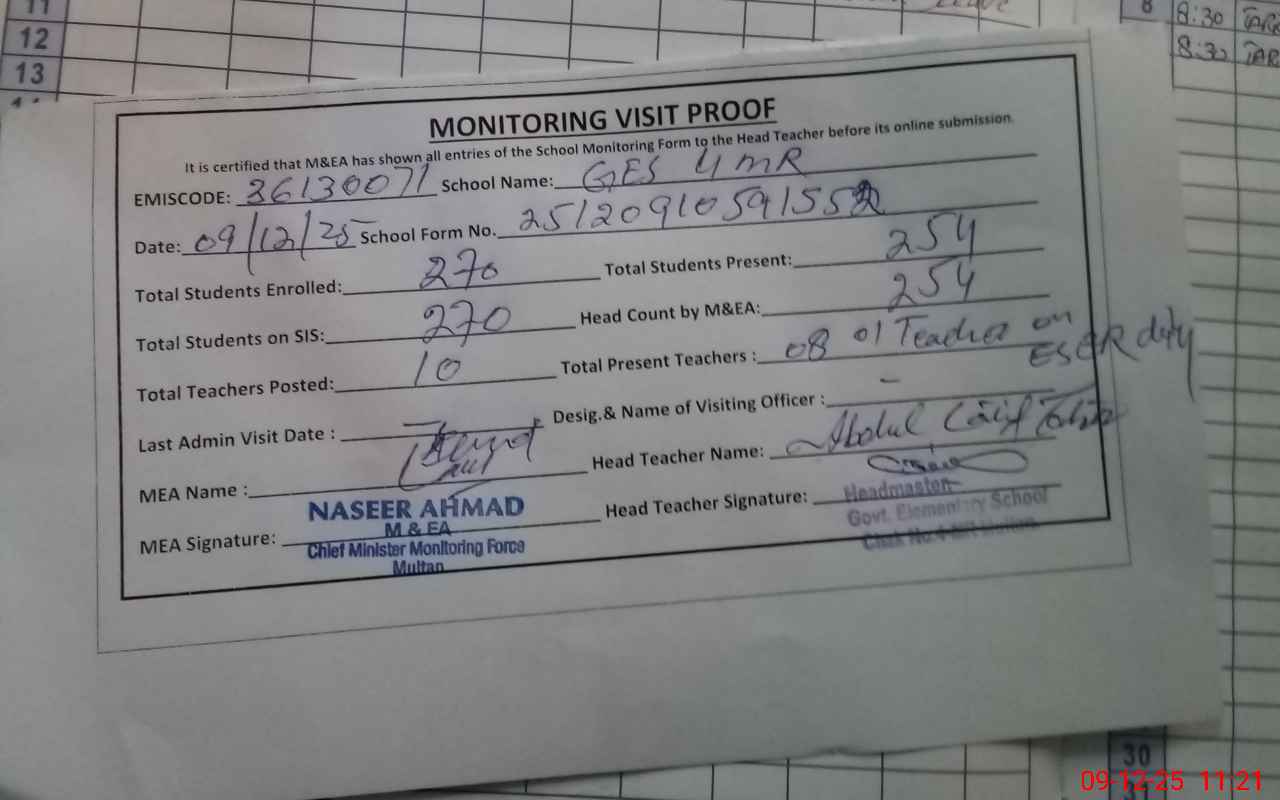 11
12
13
8 8:30
8:30
MONITORING VISIT PROOF
It is certified that M&EA has shown all entries of the School Monitoring Form to the Head Teacher before its online submission.
EMISCODE: 36130071 School Name: GES 4 MR
Date: 09/12/25 School Form No. 2512091059155
Total Students Enrolled: 270 Total Students Present: 254
Total Students on SIS: 270 Head Count by M&EA: 254
Total Teachers Posted: 10 Total Present Teachers : 08 01 Teacher on
duty
Last Admin Visit Date : — Desig.& Name of Visiting Officer : —
MEA Name : Head Teacher Name: Abdul
MEA Signature: Head Teacher Signature:
NASEER AHMAD
M & EA
Chief Minister Monitoring Force
Multan
Headmaster
Govt. Elementary School
30
31
09-12-25 11:21